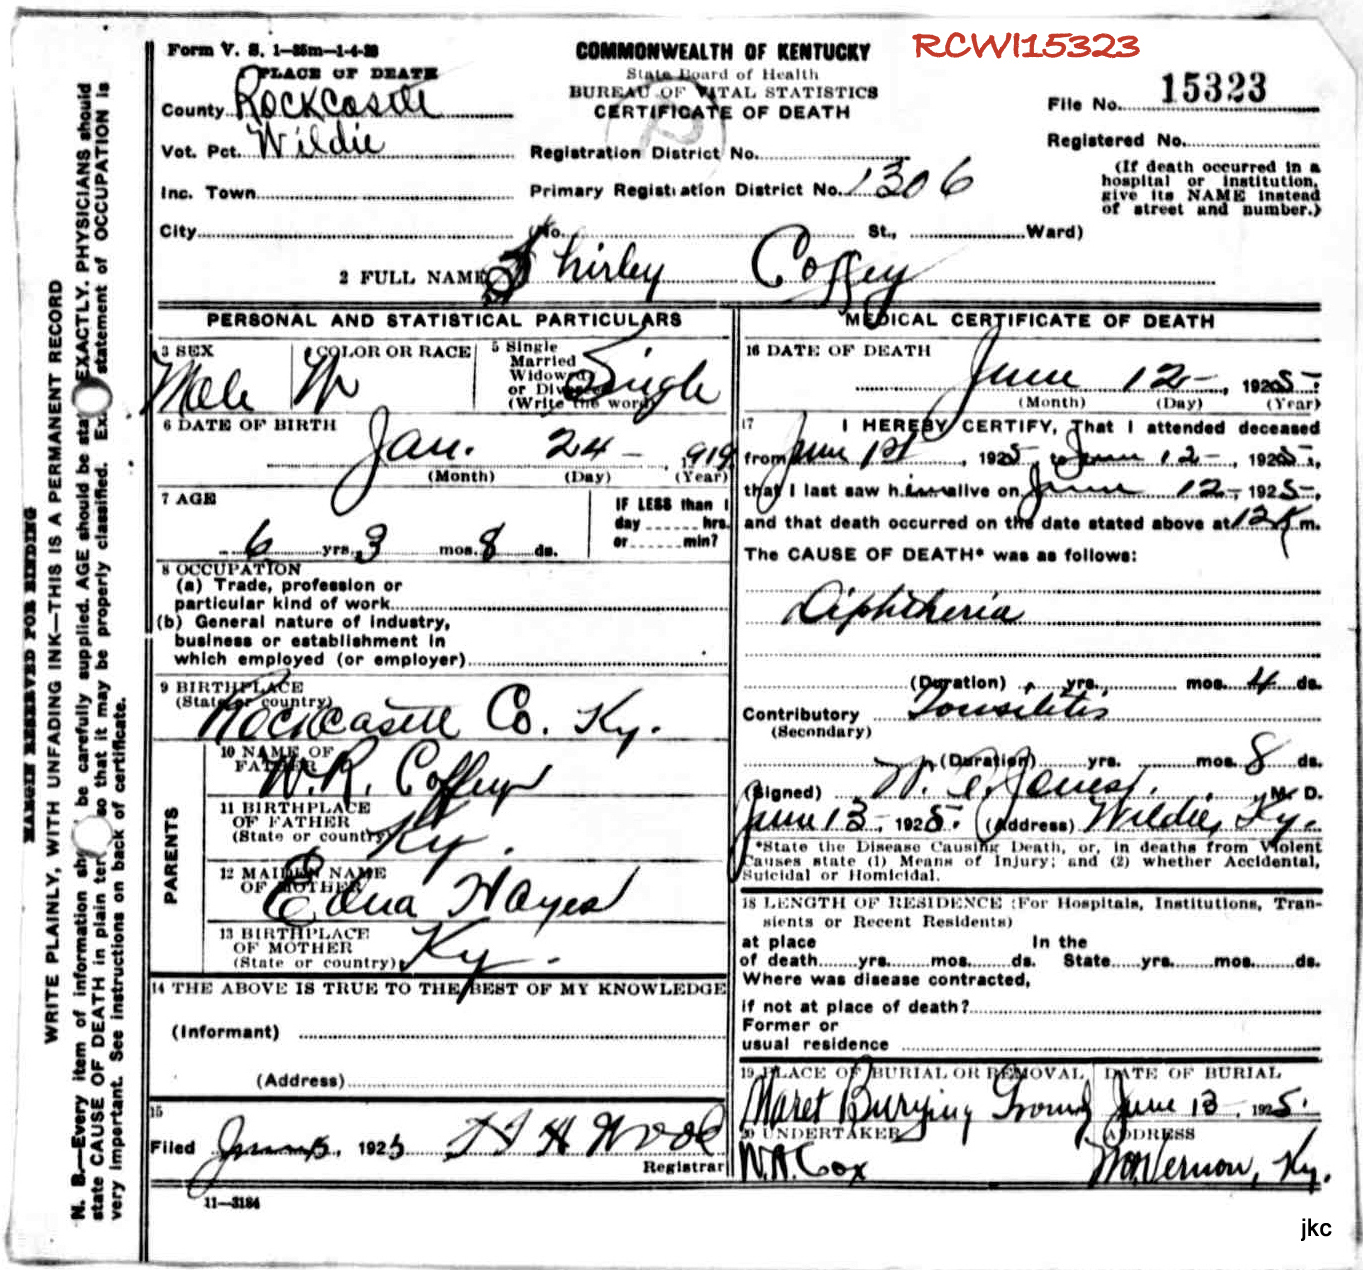 Form V. S. 1—35m—1-4-23
COMMONWEALTH OF KENTUCKY
RCWI15323
PLACE OF DEATH
State Board of Health
BUREAU OF VITAL STATISTICS
CERTIFICATE OF DEATH
File No. 15323
County Rockcastle
Registered No.
Vot. Pct. Wildie
Registration District No.
(If death occurred in a
hospital or institution,
give its NAME instead
of street and number.)
Inc. Town
Primary Registration District No. 1306
City
(No. St., Ward)
2 FULL NAME Shirley Coffey
PERSONAL AND STATISTICAL PARTICULARS
3 SEX
Male
4 COLOR OR RACE
W
5 Single
Married
Widowed
or Divorced
(Write the word)
Single
6 DATE OF BIRTH
Jan. 24 — , 1919
(Month) (Day) (Year)
7 AGE
6 yrs. 3 mos. 8 ds.
IF LESS than 1
day ...... hrs.
or ...... min?
8 OCCUPATION
(a) Trade, profession or
particular kind of work
(b) General nature of industry,
business or establishment in
which employed (or employer)
9 BIRTHPLACE
(State or country)
Rockcastle Co. Ky.
PARENTS
10 NAME OF
FATHER
W. R. Coffey
11 BIRTHPLACE
OF FATHER
(State or country)
Ky.
12 MAIDEN NAME
OF MOTHER
Edna Hayes
13 BIRTHPLACE
OF MOTHER
(State or country)
Ky.
14 THE ABOVE IS TRUE TO THE BEST OF MY KNOWLEDGE
(Informant)
(Address)
15
Filed June , 1925
Registrar
11—3184
MEDICAL CERTIFICATE OF DEATH
16 DATE OF DEATH
June 12 — , 1925.
(Month) (Day) (Year)
17 I HEREBY CERTIFY, That I attended deceased
from June 1st , 1925, to June 12 — , 1925,
that I last saw him alive on June 12 —, 1925—,
and that death occurred on the date stated above at 12 m.
The CAUSE OF DEATH* was as follows:
Diphtheria
(Duration) yrs. mos. 4 ds.
Contributory Tonsilitis
(Secondary)
(Duration) yrs. mos. 8 ds.
(Signed) W. Jones, M. D.
June 13, 1925. (Address) Wildie, Ky.
*State the Disease Causing Death, or, in deaths from Violent
Causes state (1) Means of Injury; and (2) whether Accidental,
Suicidal or Homicidal.
18 LENGTH OF RESIDENCE (For Hospitals, Institutions, Tran-
sients or Recent Residents)
at place In the
of death yrs. mos. ds. State yrs. mos. ds.
Where was disease contracted,
if not at place of death?
Former or
usual residence
19 PLACE OF BURIAL OR REMOVAL
Maret Burying Ground
DATE OF BURIAL
June 13, 1925.
20 UNDERTAKER
W. A. Cox
ADDRESS
Mt. Vernon, Ky.
MARGIN RESERVED FOR BINDING
WRITE PLAINLY, WITH UNFADING INK—THIS IS A PERMANENT RECORD
N. B.—Every item of information should be carefully supplied. AGE should be stated EXACTLY. PHYSICIANS should
state CAUSE OF DEATH in plain terms so that it may be properly classified. Exact statement of OCCUPATION is
very important. See instructions on back of certificate.
jkc